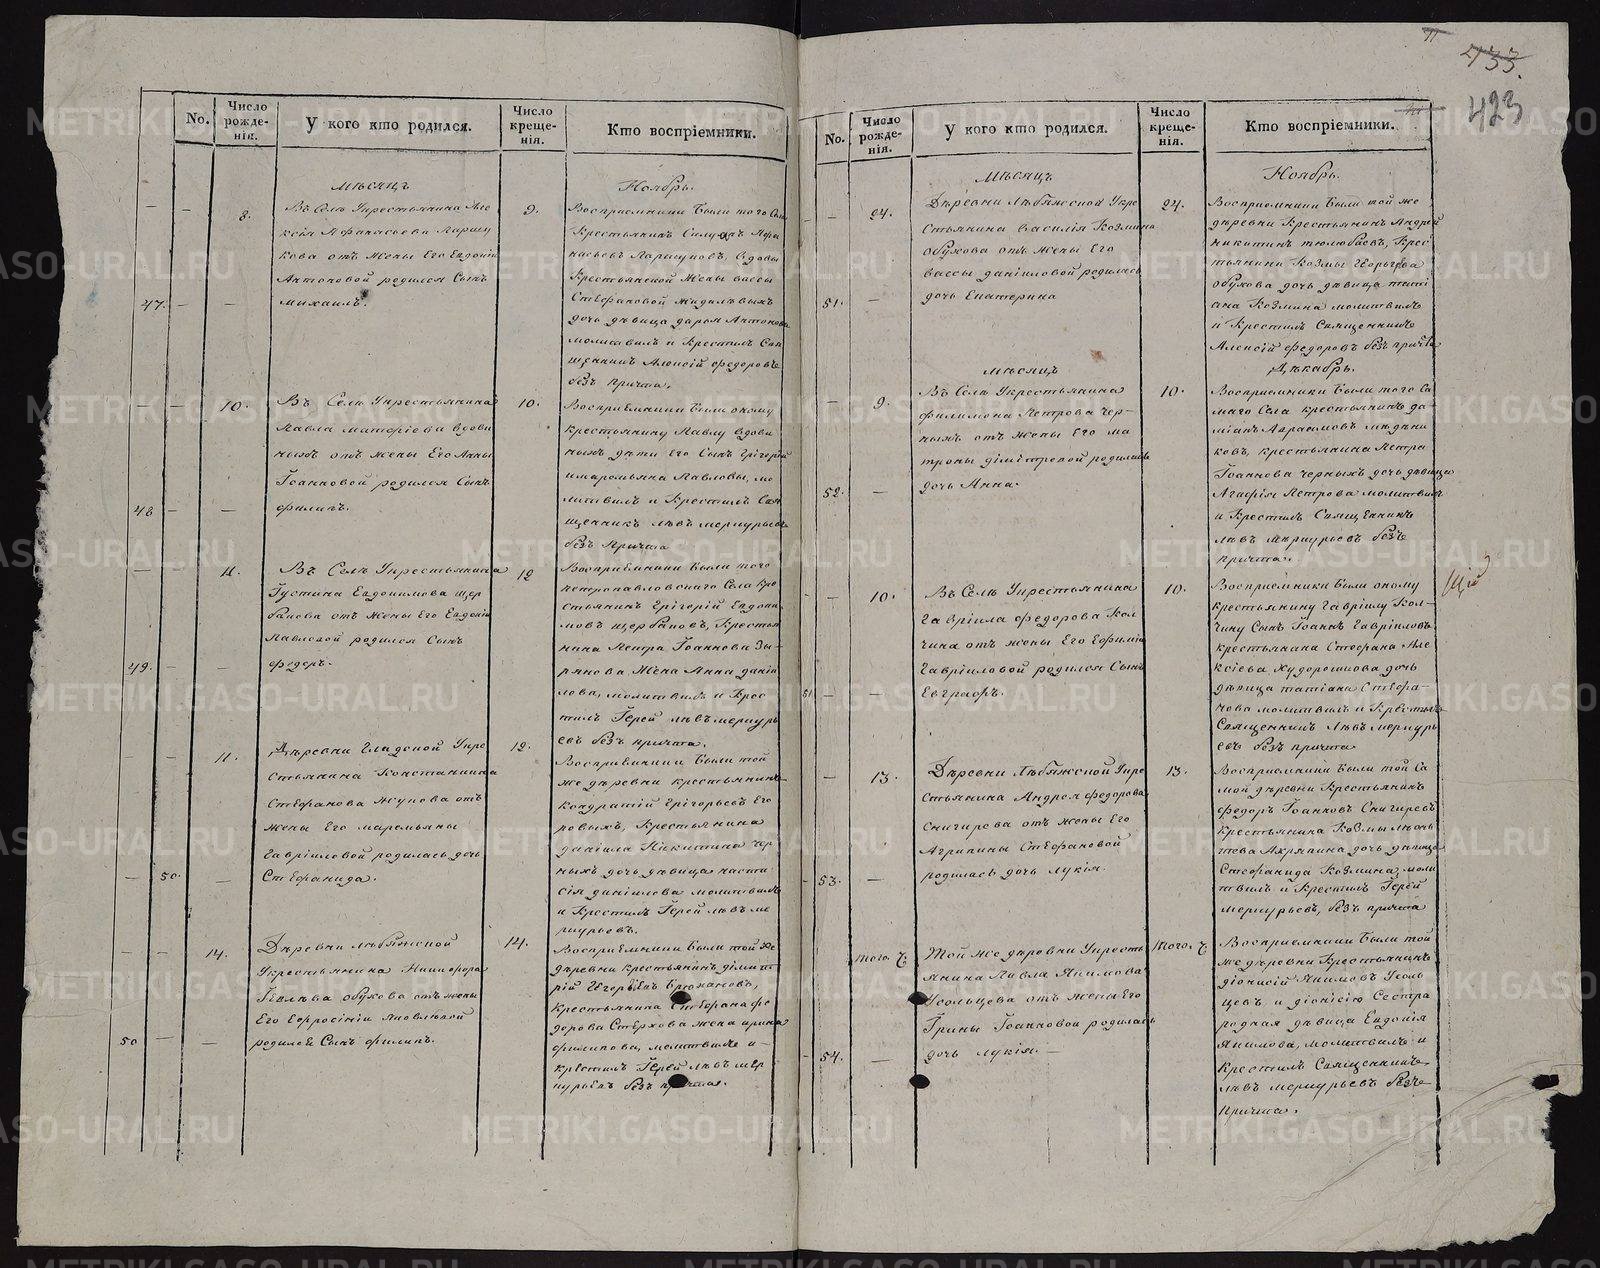 733.
423
No.
Число рожде-нія.
У кого кто родился.
Число креще-нія.
Кто воспріемники.
Мѣсяцъ
Ноябрь.
47.
8.
Въ Селѣ Укрестьянина Але
ксія Афанасьева Паршу
кова отъ жены Его Евдокіи
Антоновой родился Сынъ
михаилъ.
9.
Восприемники были того Села
Крестьянинъ
насьевъ Паршуковъ, вдовы
Крестьянской жены вассы
Стефановой
дочь дѣвица дарья Антонова
молитвилъ и Крестилъ Свя
щенникъ Алексій федоровъ
безъ причта.
48
10.
Въ Селѣ Укрестьянина
Павла матфіева вдови
ныхъ отъ жены Его Анны
Іоанновой родился Сынъ
филипъ.
10.
Восприемники были оному
крестьянину Павлу вдови
ныхъ дѣти Его Сынъ Григорій
имаремьяна Павловы, мо
литвилъ и Крестилъ Свя
щенникъ левъ меркурьевъ
безъ причта
49.
11.
Въ Селѣ Укрестьянина
Іустина Евдокимова щер
бакова отъ жены Его Евдокіи
Павловой родился Сынъ
федоръ.
12
Восприемники были того
петропавловскаго Села кре
стьянинъ Григорій Евдоки
мовъ щербаковъ, Крестья
нина Петра Іоаннова Зы-
рянова жена Анна даніи
лова, молитвилъ и Крес
тилъ Іерей левъ меркурь
евъ безъ причта.
50.
11.
Деревни Гладской Укре
стьянина Константина
Стефанова жукова отъ
жены Его маремьяны
Гавріиловой родилась дочь
Стефанида.
12.
Восприемники были той
же деревни крестьянинъ
кондратій Григорьевъ Его
ровыхъ, Крестьянина
даніила Никитина чер
ныхъ дочь дѣвица наста
сія даніилова молитвилъ
и Крестилъ Іерей левъ ме
ркурьевъ.
50
14.
Деревни лебяжской
Укрестьянина Никифора
обухова отъ жены
Его Ефросініи Яковлевой
родился Сынъ филипъ.
14.
Восприемники были той же
деревни крестьянинъ диміт
рій Егоровъ
крестьянина Стефана фе
дорова Стерхова жена ирина
филипова, молитвилъ и
крестилъ Іерей левъ мер
курьевъ безъ причта.
No.
Число рожде-нія.
У кого кто родился.
Число креще-нія.
Кто воспріемники.
Мѣсяцъ
Ноябрь.
51.
24.
Деревни лебяжской Укре
стьянина василія Козмина
обухова отъ жены Его
вассы даніиловой родилась
дочь Екатерина
24.
Восприемники были той же
деревни Крестьянинъ Андрей
никитинъ тюлюбаевъ, Крес
тьянина Козмы Георгіева
обухова дочь дѣвица тати
ана Козмина молитвилъ
и Крестилъ Священникъ
Алексій федоровъ безъ причта
мѣсяцъ
Декабрь.
52.
9.
Въ Селѣ Укрестьянина
филимона Петрова чер-
ныхъ отъ жены Его ма
троны димітровой родилась
дочь Анна.
10.
Восприемники были того Са
маго Села крестьянинъ да
міанъ Аврамовъ
ковъ, крестьянина Петра
Іоаннова черныхъ дочь дѣвица
Агафія Петрова молитвилъ
и Крестилъ Священникъ
левъ меркурьевъ безъ
причта.
51
10.
Въ Селѣ Укрестьянина
Гавріила федорова кол
чина отъ жены Его Ефиміи
Гавріиловой родился Сынъ
Евграфъ.
10.
Восприемники были оному
крестьянину Гавріилу Кол-
чину Сынъ Іоаннъ Гавріиловъ
крестьянина Стефана Але
ксіева Худорошкова дочь
дѣвица татіана Стефа-
нова молитвилъ и Крестилъ
Священникъ левъ меркурь
евъ безъ причта
53.
13.
Деревни лебяжской Укре
стьянина Андрея федорова
Снигирева отъ жены Его
Агрипины Стефановой
родилась дочь лукія.
13.
Восприемники были той Са
мой деревни Крестьянинъ
федоръ Іоанновъ Снигиревъ
крестьянина Козмы
дочь дѣвица
Стефанида Козмина, моли
твилъ и Крестилъ Іерей
меркурьевъ, безъ причта
54.
того. Ч.
Той же деревни Укресть
янина Павла Якимова
Усольцева отъ жены Его
Ирины Іоанновой родилась
дочь лукія.
того. Ч.
Восприемники были той
же деревни Крестьянинъ
діонисій Якимовъ Усоль
цевъ и діонисію Сестра
родная дѣвица Евдокія
Якимова, молитвилъ и
крестилъ Священникъ
левъ меркурьевъ безъ
причта.
METRIKI.GASO-URAL.RU